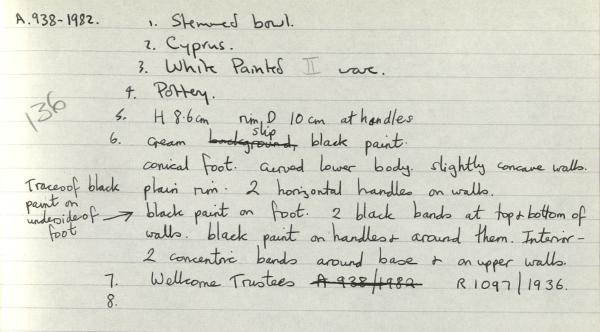 A.938-1982. 1. Stemmed bowl.
2. Cyprus.
3. White Painted II ware.
4. Pottery.
136
5. H 8.6cm rim D 10cm at handles
6. cream background, slip black paint.
conical foot. curved lower body. slightly concave walls.
plain rim. 2 horizontal handles on walls.
Traces of black
paint on
underside of
foot
black paint on foot. 2 black bands at top & bottom of
walls. black paint on handles & around them. Interior -
2 concentric bands around base & on upper walls.
7. Wellcome Trustees A 938/1982 R1097/1936.
8.